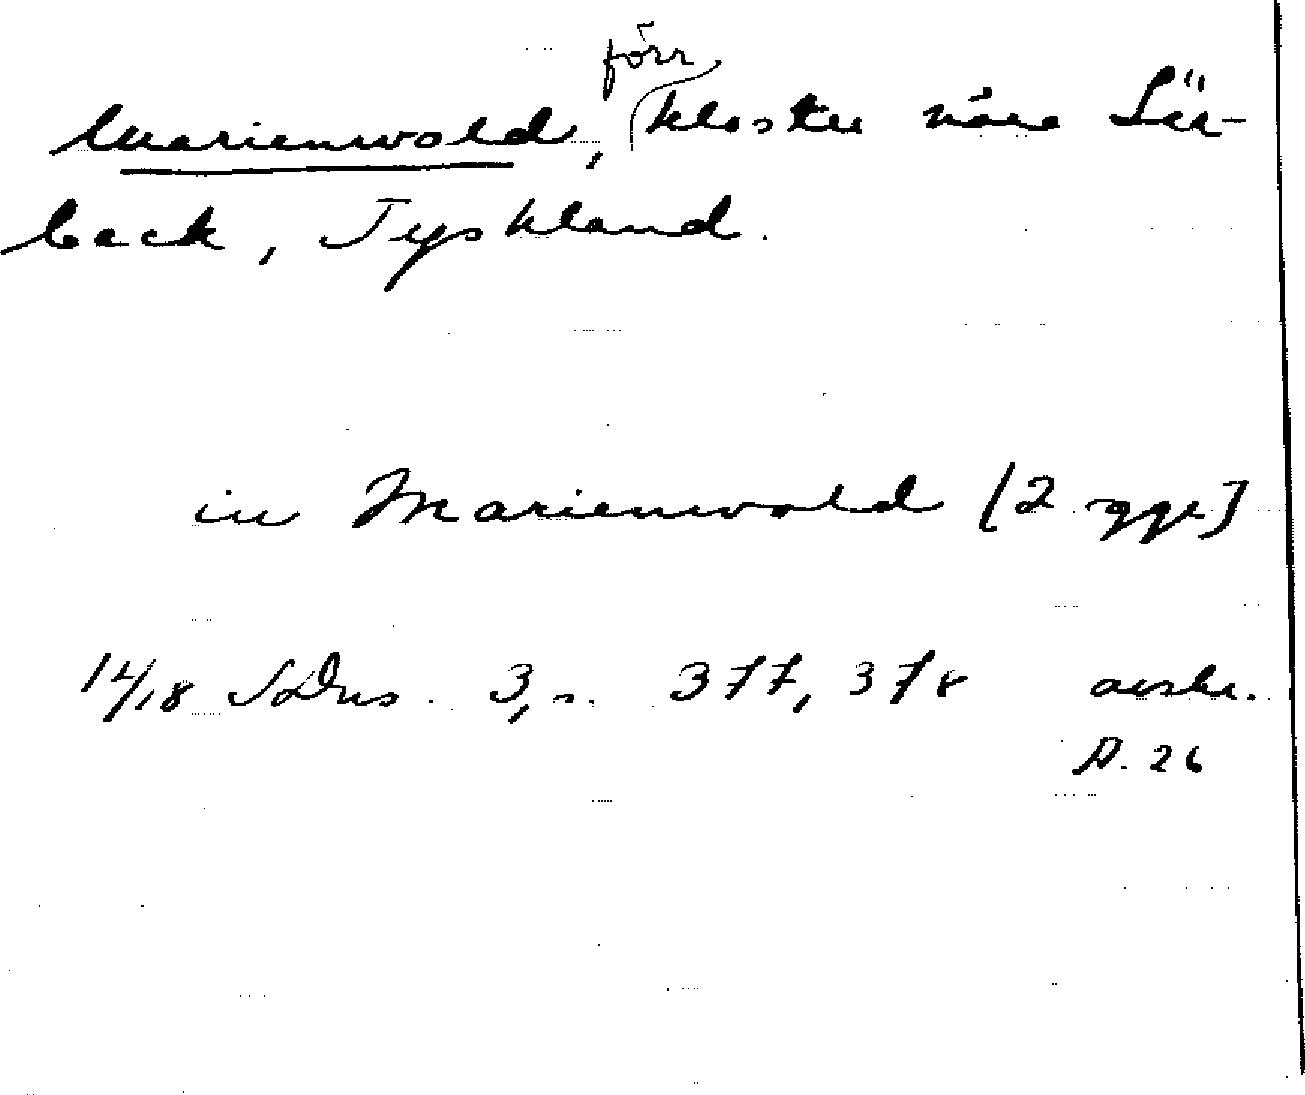 Marienwold, förr kloster nära Lü-
beck, Tyskland.
in Marienwold [2 ggr]
14/18 SDns. 3, s. 377, 378 avskr.
A. 26